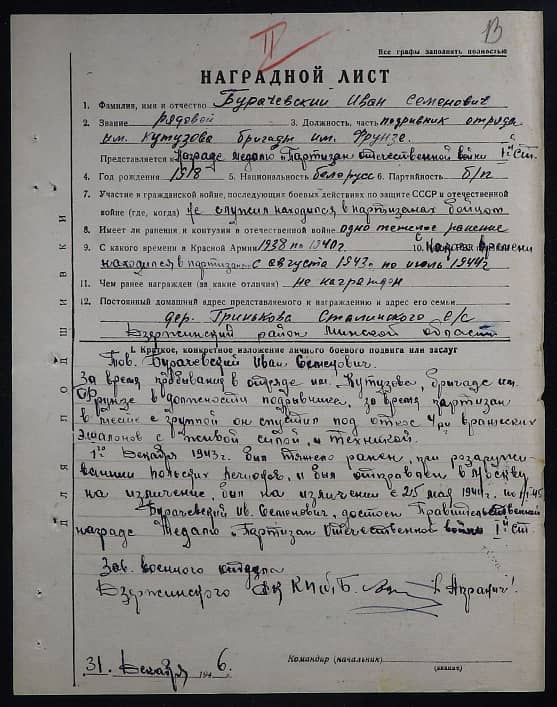 II
В
Все графы заполнять полностью
НАГРАДНОЙ ЛИСТ
1. Фамилия, имя и отчество Бурачевский Иван Семенович
2. Звание рядовой 3. Должность, часть подривник отряда
им. Кутузова бригады им. Фрунзе.
Представляется к Награде медалю "Партизан Отечественной войни Iй Ст.
4. Год рождения 1918 5. Национальность белорусс 6. Партийность б/п
7. Участие в гражданской войне, последующих боевых действиях по защите СССР и отечественной
войне (где, когда) не служил находился в партизанах бойцом
8. Имеет ли ранения и контузии в отечественной войне одно тяжелое ранение
9. С какого времени в Красной Армии 1938 по 1940 г. 10.
находился в партизанах с августа 1943 г по июль 1944 г
11. Чем ранее награжден (за какие отличия) не награжден
12. Постоянный домашний адрес представляемого к награждению и адрес его семьи
дер. Гринькова Сталинского с/с
Дзержинский район Минской области
I. Краткое, конкретное изложение личного боевого подвига или заслуг
Тов. Бурачевский Иван Семенович.
За время пребивания в отряде им. Кутузова, бригаде им.
Фрунзе в должности подривника, за время партизан
в месте с группой он спустил под откос 4ри вражеских
эшалонов с живой силой, и техникой.
1го Декабря 1943 г. был тяжело ранен, при разаружи
вании польских легионов, и был отправлен в Москву
на изличение, был на изличении с 25 мая 1944 г. по
Бурачевский Ив. Семенович, достоен Правительственной
награде Медалю "Партизан Отечественной войны Iй Ст.
Зав. военного отдела
Дзержинского РК КП/б/Б.
31. Декабря 1946 г.
Командир (начальник)
(звание)
ДЛЯ ПОДШИВКИ